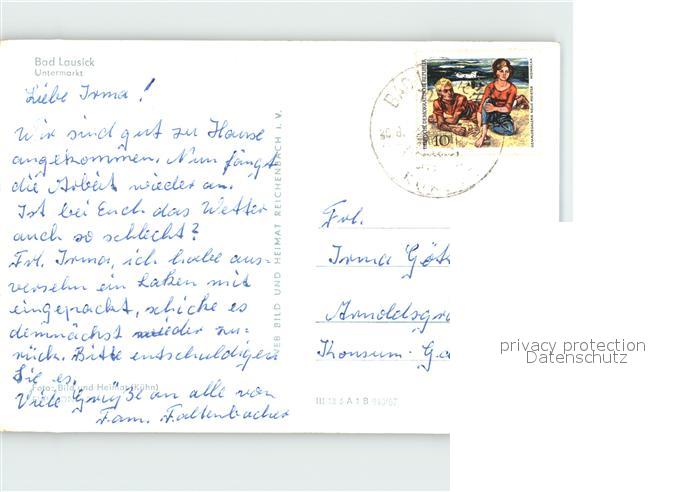 Bad Lausick
Untermarkt
Liebe Irma!
Wir sind gut zu Hause
angekommen. Nun fängt
die Arbeit wieder an.
Ist bei Euch das Wetter
auch so schlecht?
Frl. Irma, ich habe aus-
versehn ein Laken mit
eingepackt, schicke es
demnächst wieder zu-
rück. Bitte entschuldigen
Sie es.
Viele Grüße an alle von
Fam. Faltenbacher
Foto: Bild und Heimat (Kühn)
VEB BILD UND HEIMAT REICHENBACH i. V.
DEUTSCHE DEMOKRATISCHE REPUBLIK
10
Frl.
Irma Göt
Arnoldsgr
Konsum-Ga
III 18 5 A 1 B
privacy protection
Datenschutz